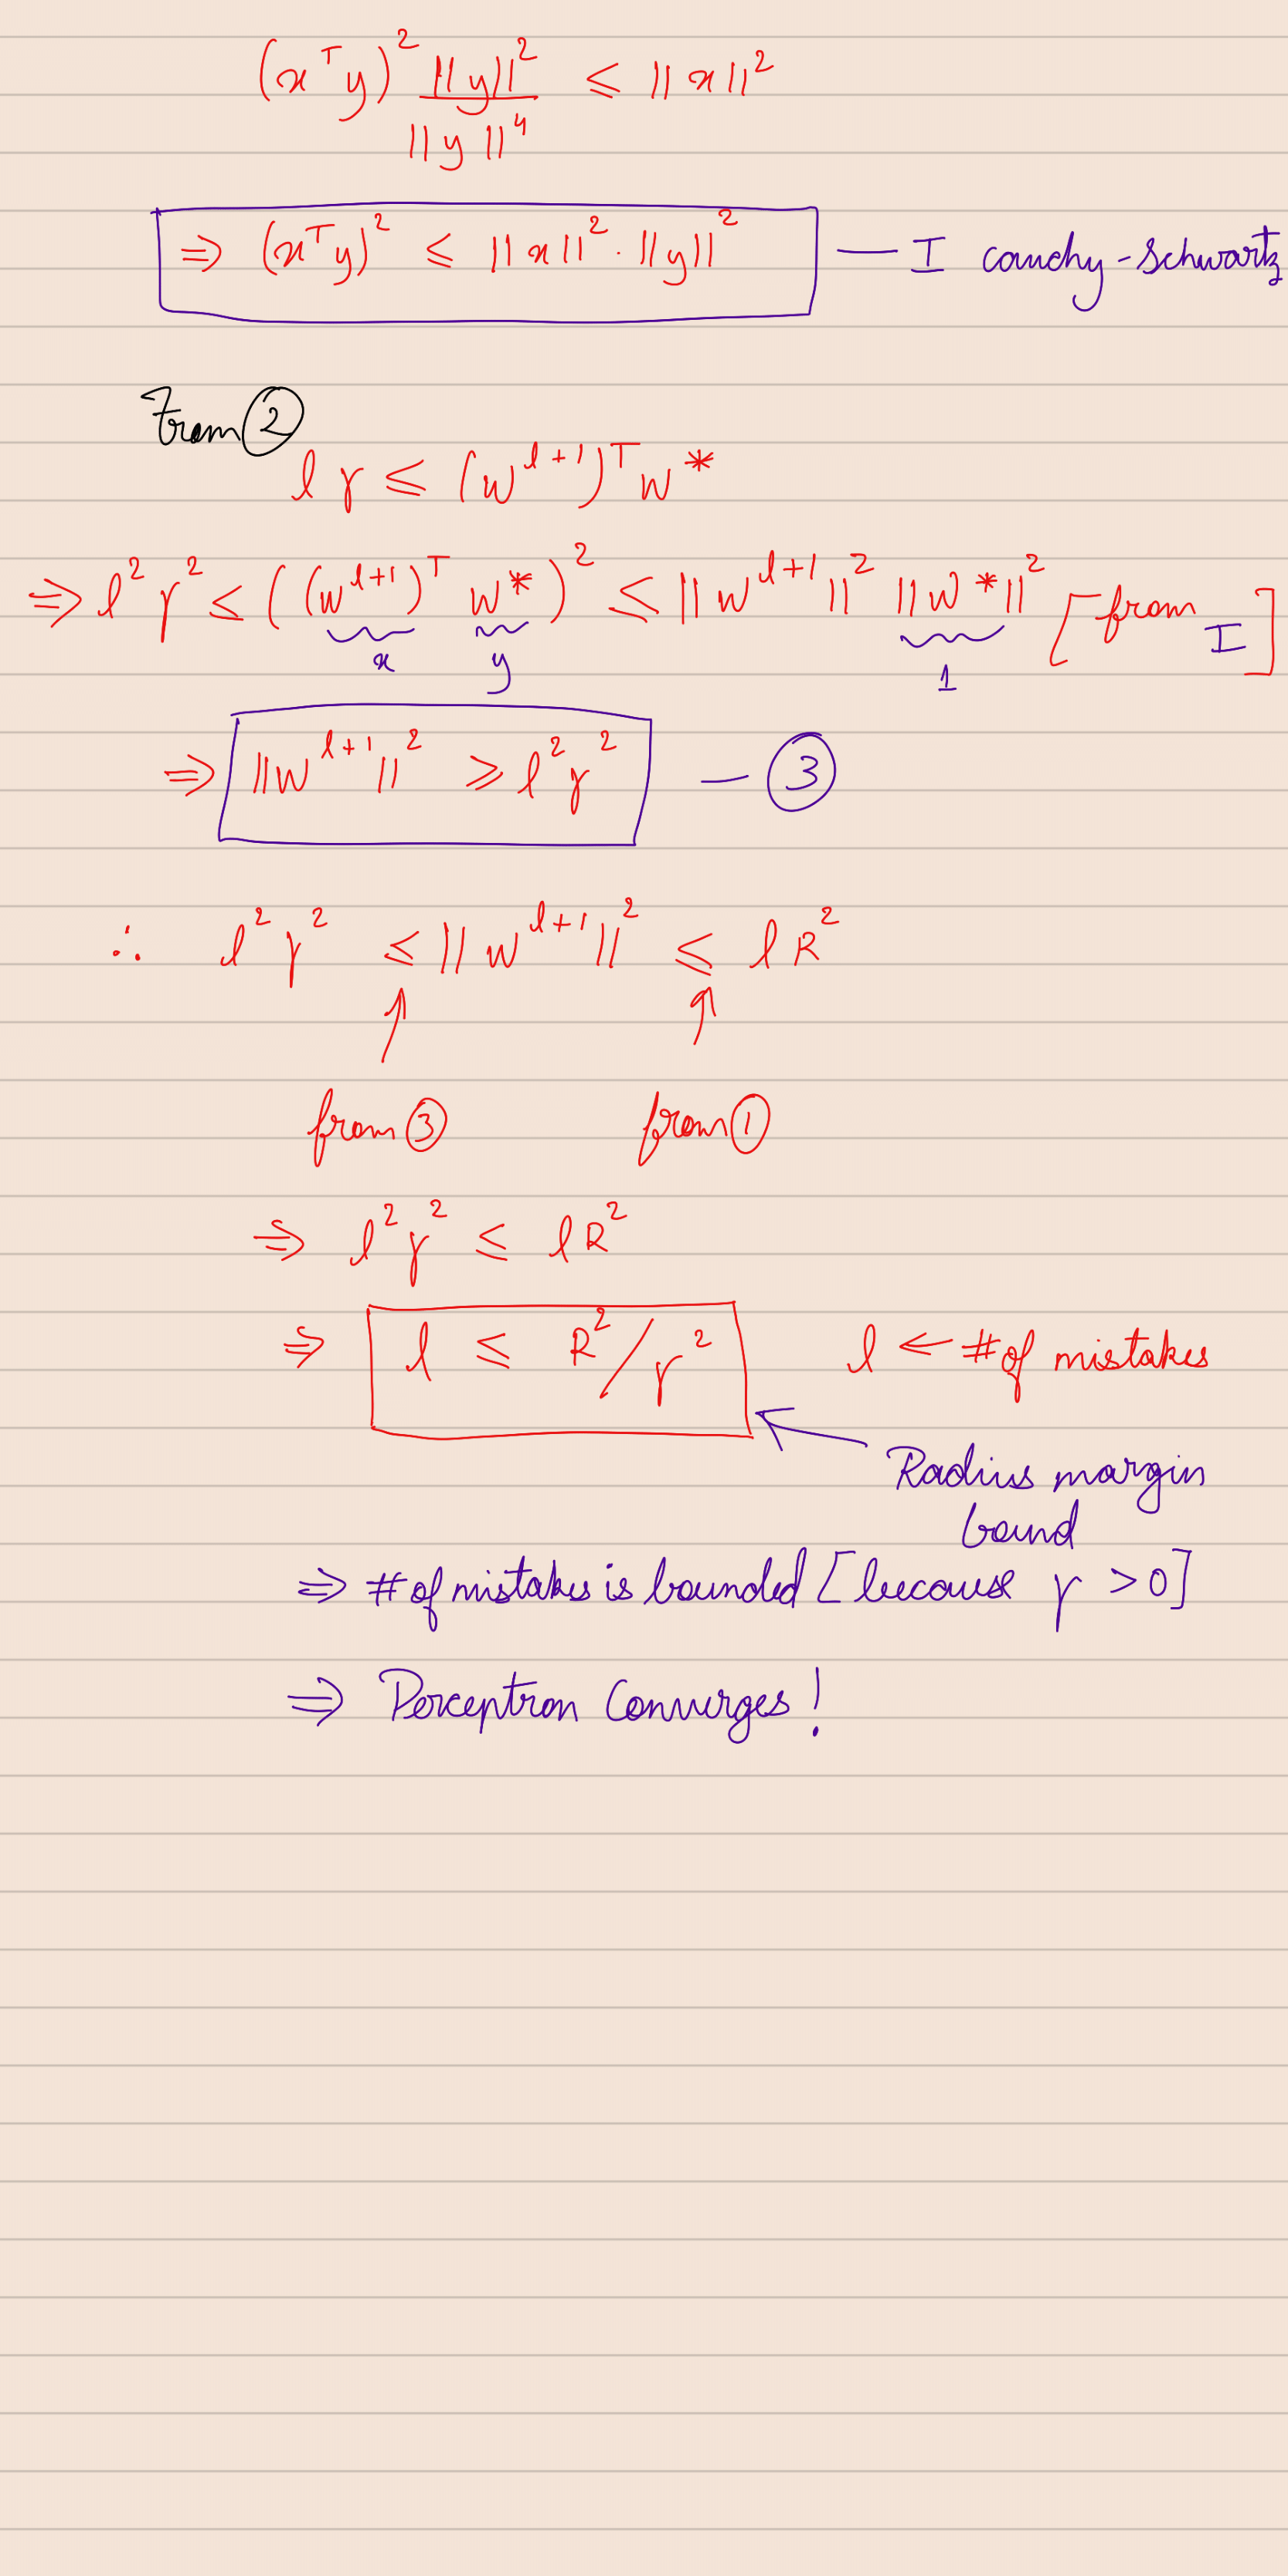 (xᵀy)² ||y||² / ||y||⁴ ≤ ||x||²
⇒ (xᵀy)² ≤ ||x||² · ||y||² — I cauchy-Schwartz
From ②
l γ ≤ (w^{l+1})ᵀ w*
⇒ l² γ² ≤ ((w^{l+1})ᵀ w*)² ≤ ||w^{l+1}||² ||w*||² [from I]
x y 1
⇒ ||w^{l+1}||² ≥ l² γ² — ③
∴ l² γ² ≤ ||w^{l+1}||² ≤ l R²
from ③ from ①
⇒ l² γ² ≤ l R²
⇒ l ≤ R² / γ² l ← # of mistakes
Radius margin
bound
⇒ # of mistakes is bounded [because γ > 0]
⇒ Perceptron Converges!